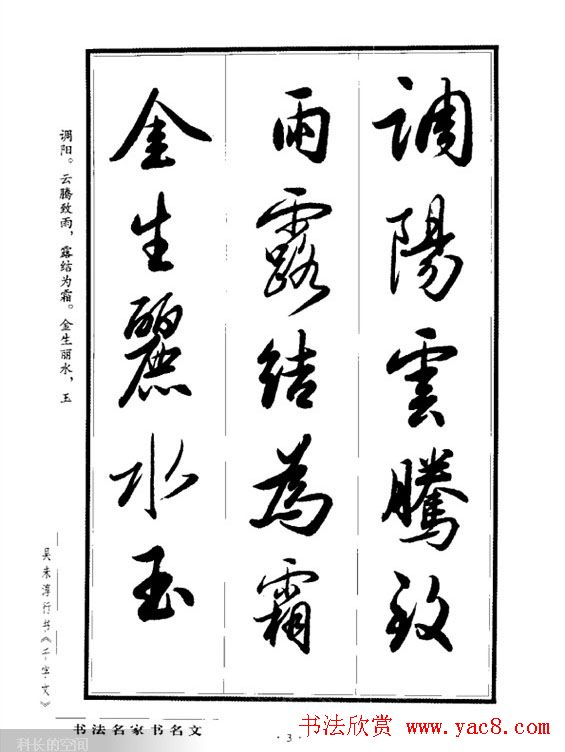 調陽雲騰致
雨露結為霜
金生麗水玉
调阳。云腾致雨，露结为霜。金生丽水，玉
吴未淳行书《千字文》
书法名家书名文
·3·
书法欣赏 www.yac8.com
科长的空间